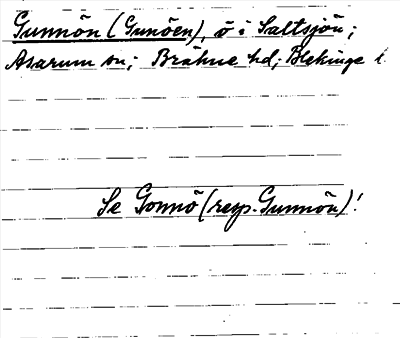 Gunnön (Gunöen), ö i Saltsjön;
Asarum sn; Bräkne hd; Blekinge l.
Se Gonnö (resp. Gunnön)!